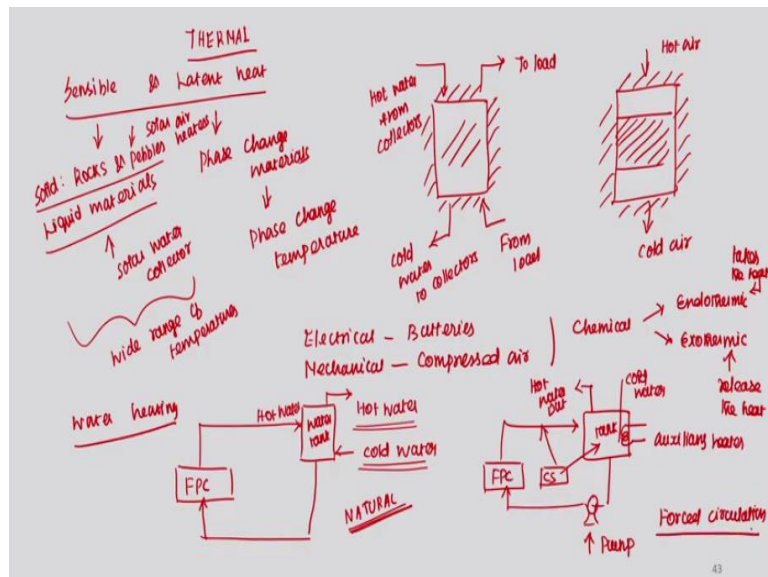 THERMAL
Sensible & Latent heat
solar air
heaters
Solid: Rocks & Pebbles
Liquid materials
solar water
collector
wide range of
temperatures
Phase change
materials
Phase change
temperature
Hot water
from
collectors
To load
cold
water
to collectors
From
load
Hot air
cold air
Electrical - Batteries
Mechanical - Compressed air
Chemical
takes
the heat
Endothermic
Exothermic
release
the heat
Water heating
Hot water
water
tank
Hot water
cold water
FPC
NATURAL
Hot
water
out
cold
water
tank
auxiliary heater
FPC
CS
Pump
Forced circulation
43